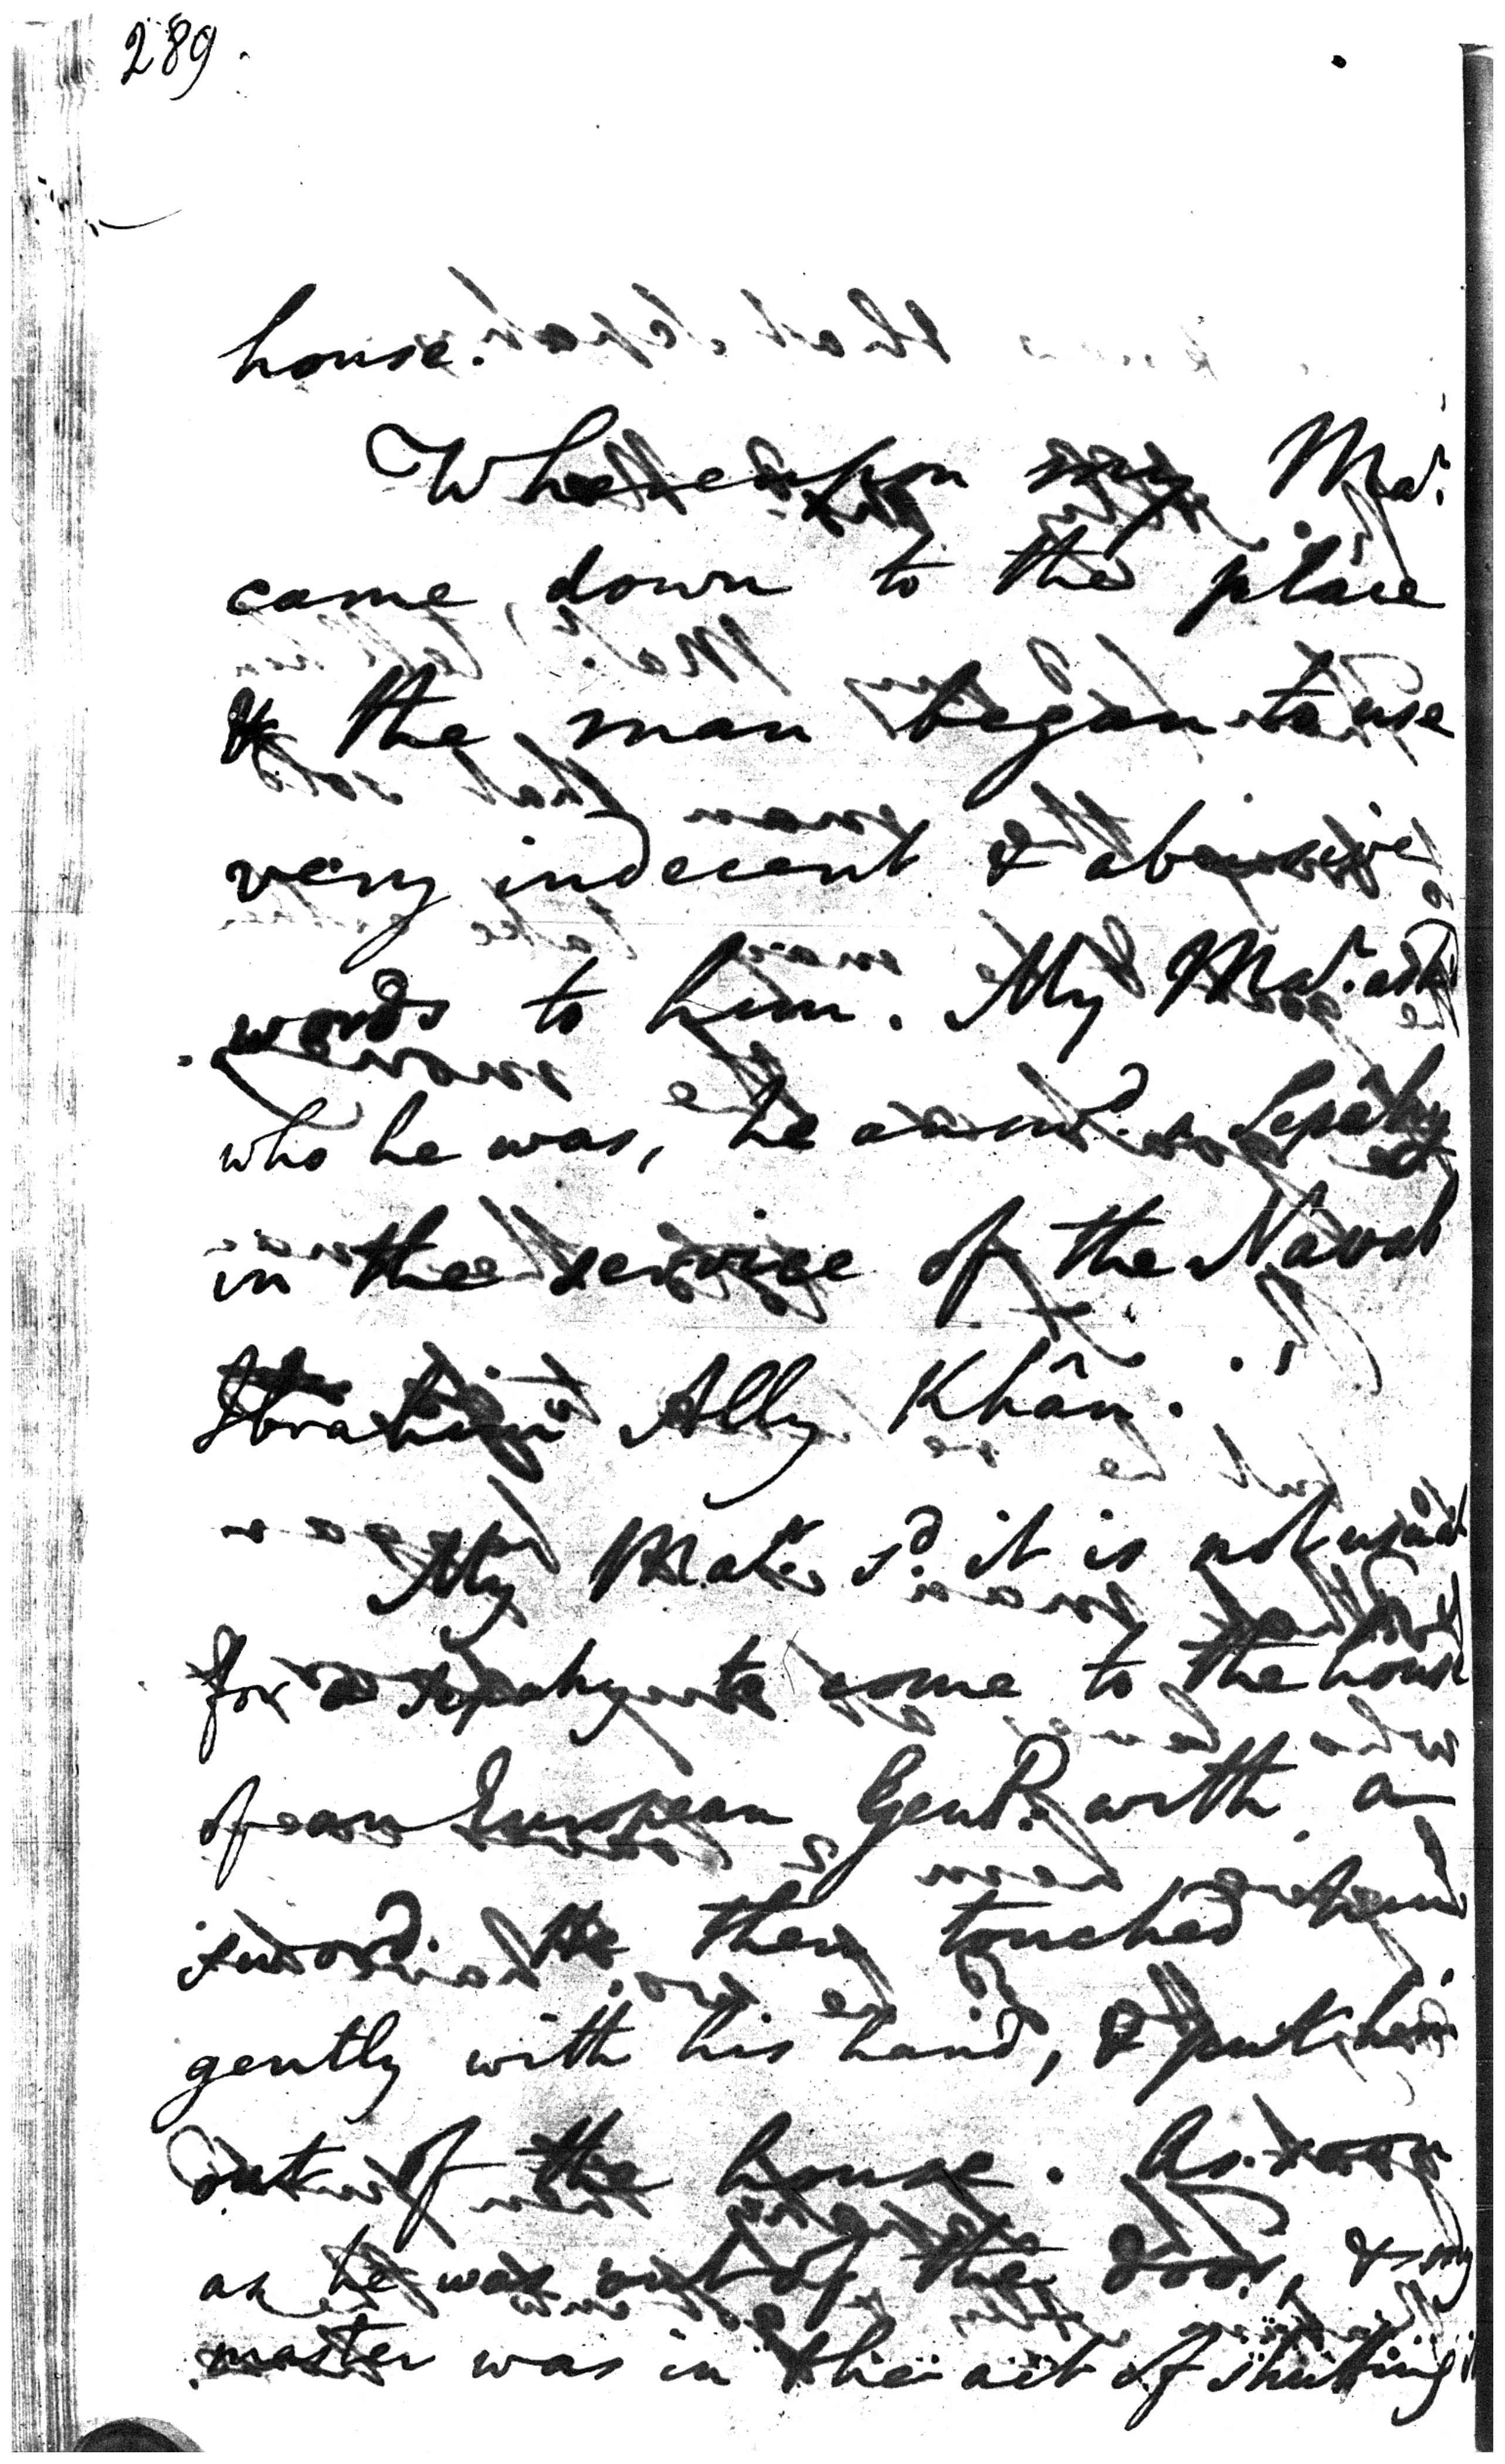 289.
house.
Whereupon my Mar.
came down to the place
& the man began to use
very indecent & abusive
words to him. My Mar. asked
who he was, he answd. a Sepahy
in the service of the Navab
Ibrahim Ally Khân.
My Mater sd. it is not usual
for a Sepahy to come to the house
of an European Gentn. with a
sword. He then touched him
gently with his hand, & put him
out of the house. As soon
as he was out of the door, & my
master was in the act of shutting